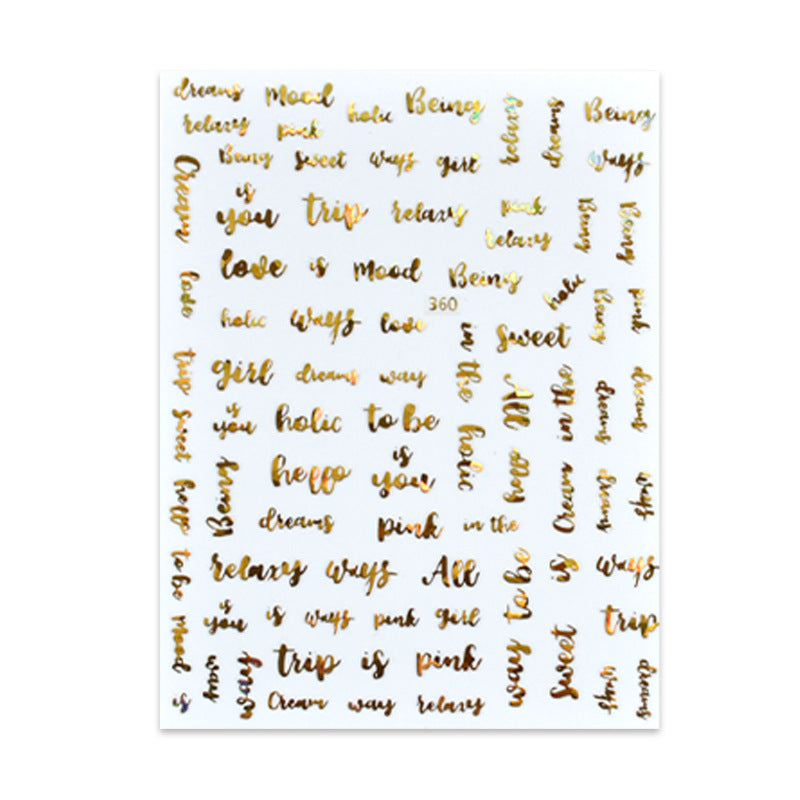 dreams Mood holic Being
relaxy pink
relaxy
dreams
Being
ways
Being sweet ways girl
Cream love trip sweet hello to be Mood is
is
you trip relaxy pink
relaxy
Being
Being
love is Mood Being
holic
Being
pink
360
holic ways love
in the holic
sweet
girl dreams way
All hello
in the
Cream
dreams
dreams
is
you holic to be
hello is
you
Being
dreams
ways
dreams pink in the
relaxy ways All
way to be
is
sweet
ways
is
you is ways pink girl
trip
way
way
trip is pink
ways
dreams
Cream way relaxy